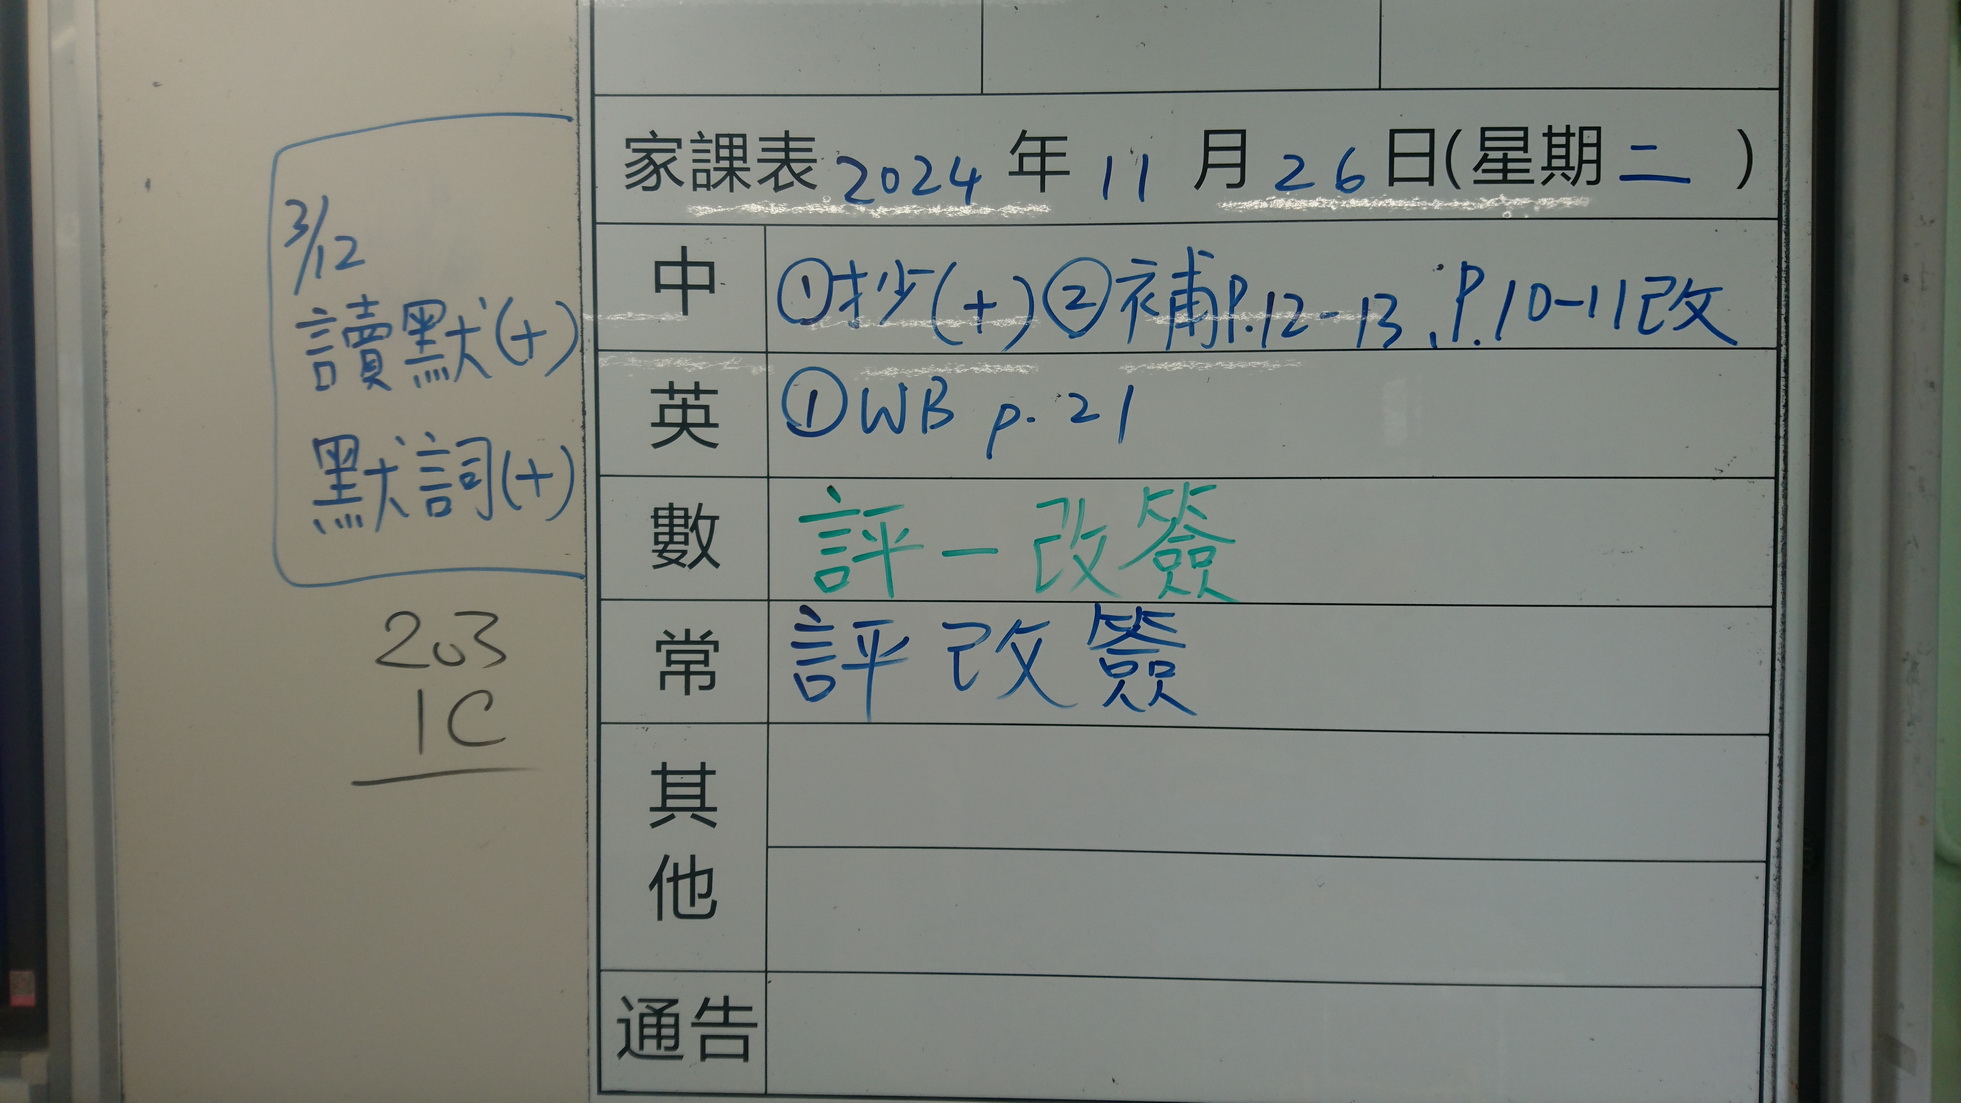 家課表 2024 年 11 月 26 日(星期二 )
中 ①抄(十)②補P.12-13、P.10-11改
英 ①WB p.21
數 評一改簽
常 評改簽
其他
通告
3/12
讀默(十)
默詞(十)
203
1C